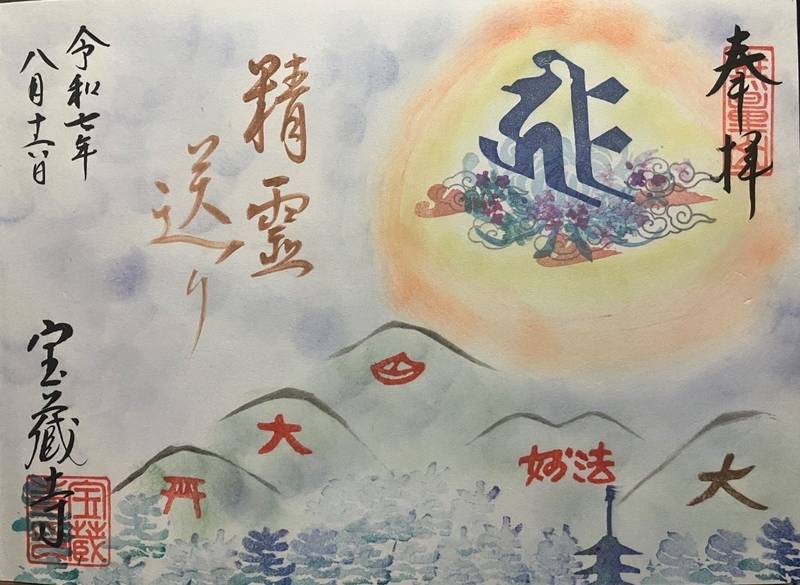 奉拝
精霊
送り
令和七年
八月十六日
宝蔵寺
宝蔵
大
妙法
大